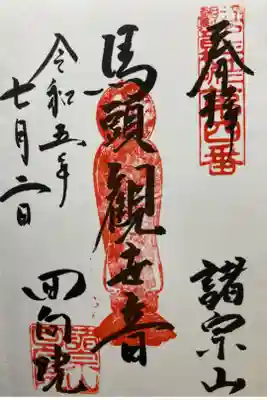 奉拝
第四番
諸宗山
馬頭觀世音
令和五年
七月二日
回向院